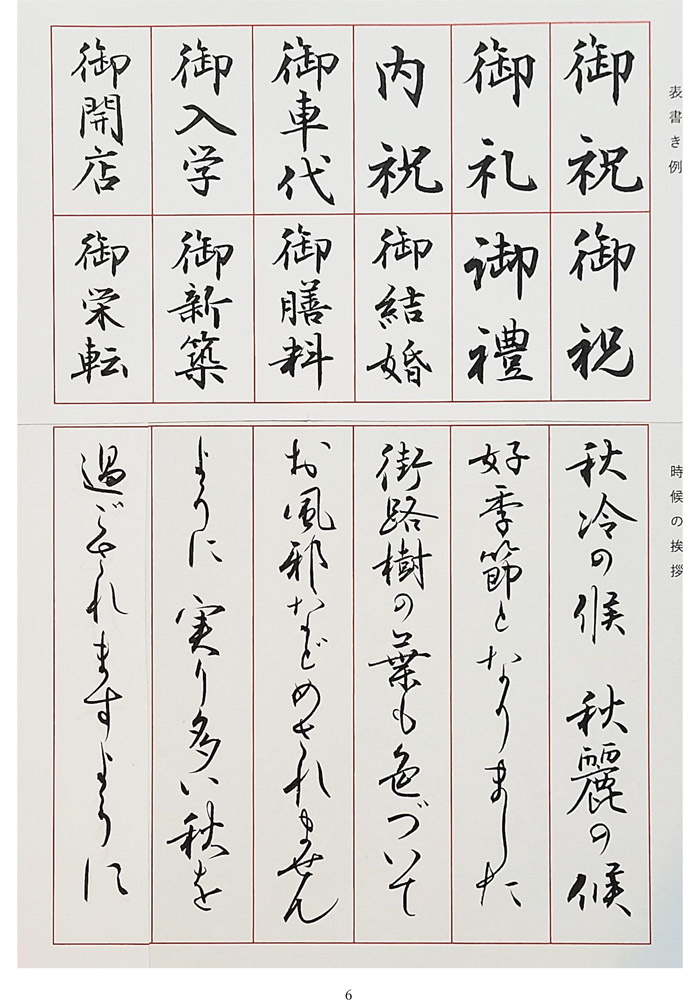 表書き例
御祝
御礼
内祝
御車代
御入学
御開店
御祝
御禮
御結婚
御膳料
御新築
御栄転
時候の挨拶
秋冷の候　秋麗の候
好季節となりました
街路樹の葉も色づいて
お風邪などめされません
ように　実り多い秋を
過ごされますように
6